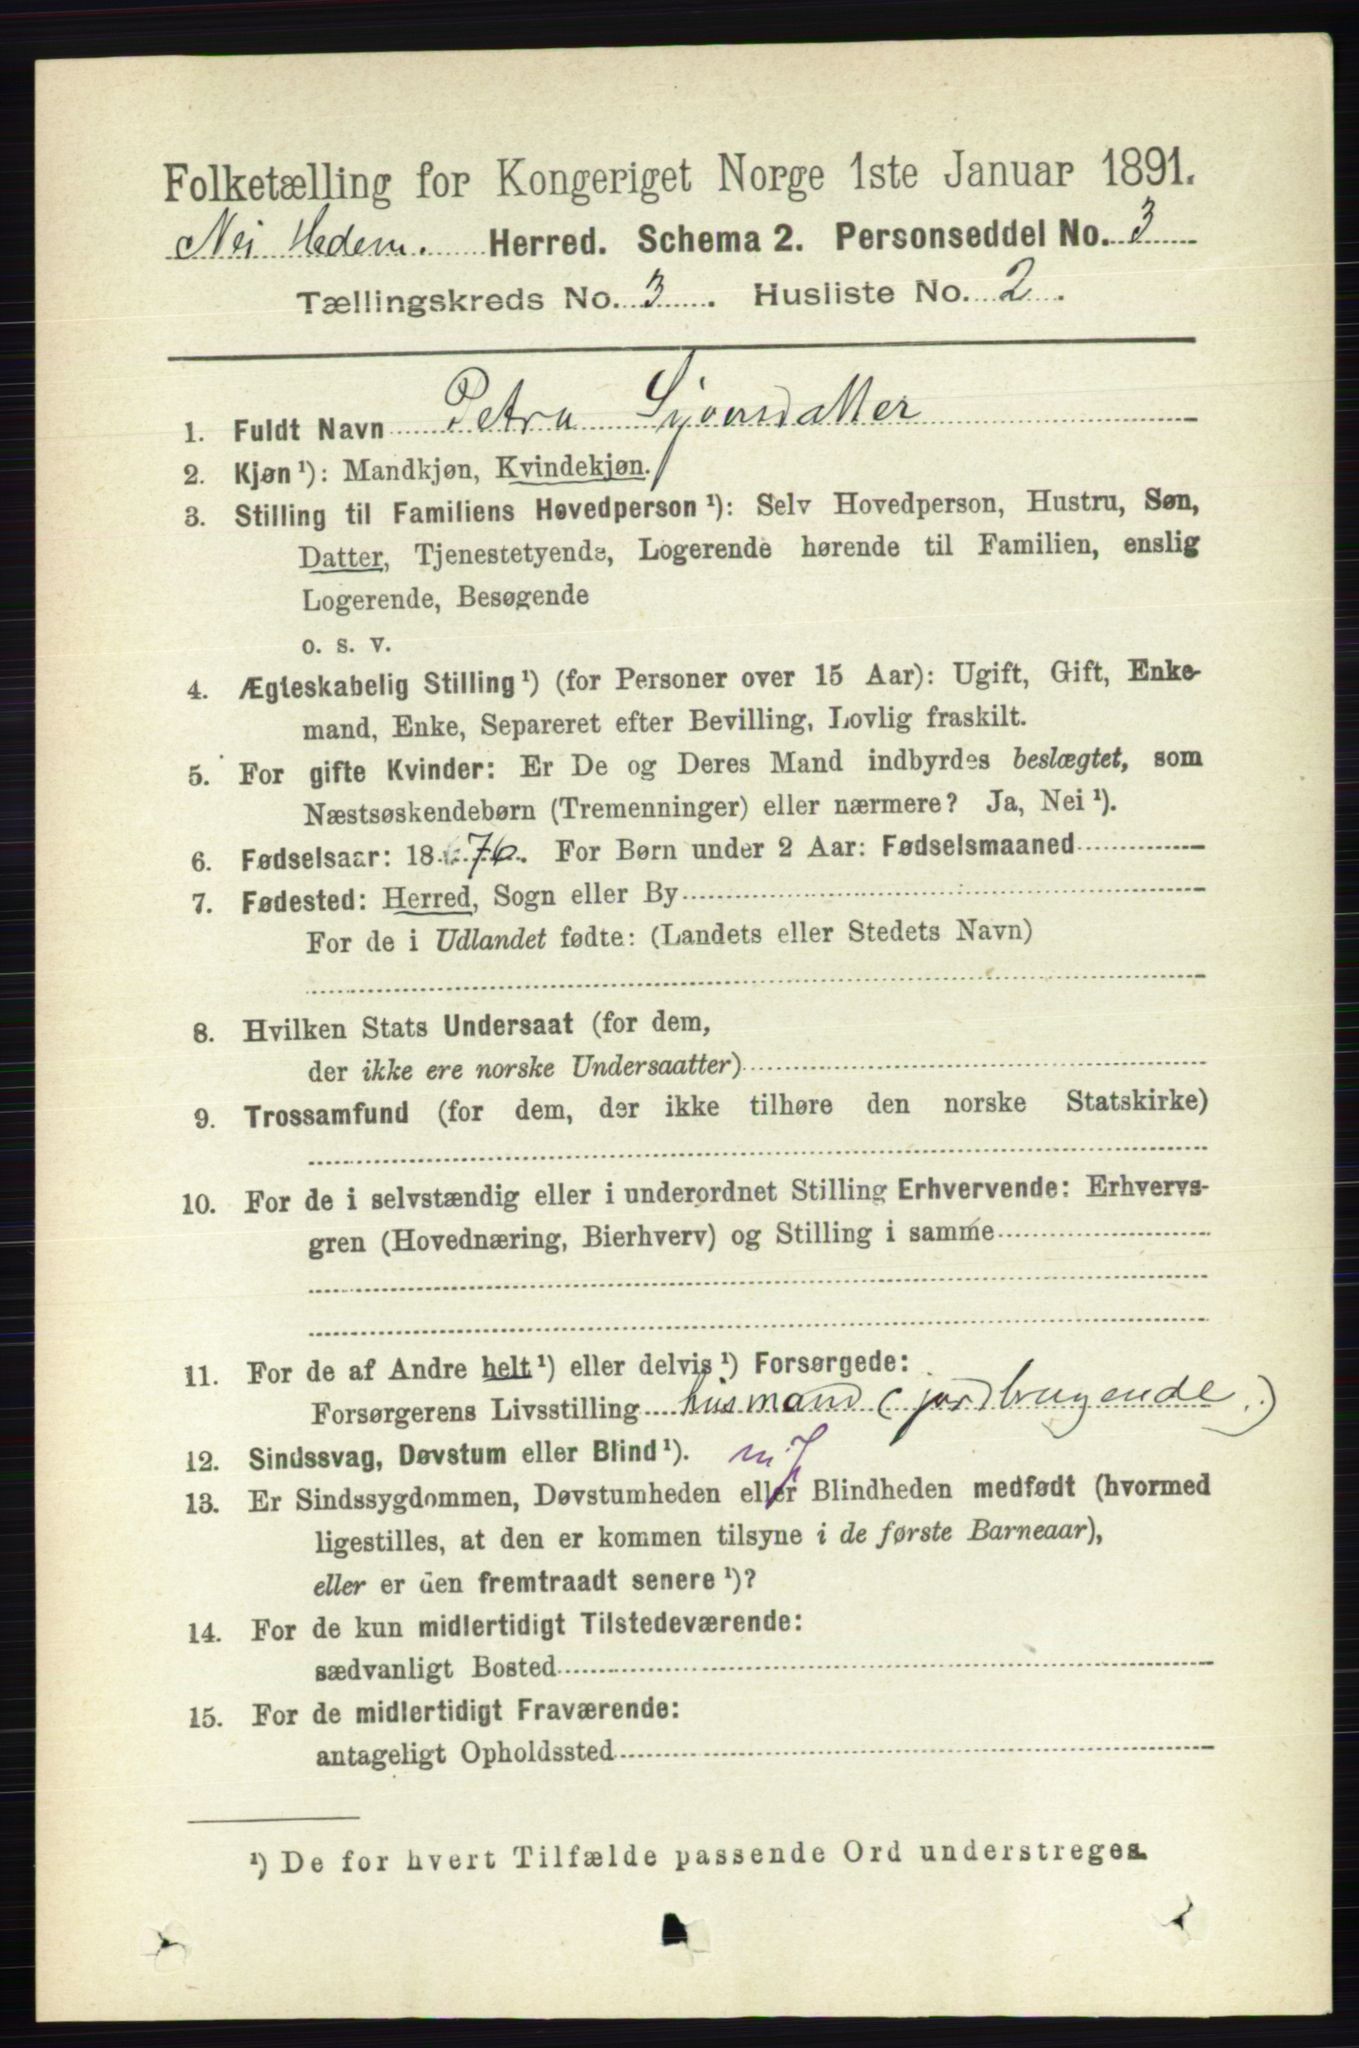 Folketælling for Kongeriget Norge 1ste Januar 1891.
Hedem. Herred. Schema 2. Personseddel No. 3
Tællingskreds No. 3. Husliste No. 2.
1. Fuldt Navn Petra Syversdatter
2. Kjøn¹): Mandkjøn, Kvindekjøn.
3. Stilling til Familiens Hovedperson¹): Selv Hovedperson, Hustru, Søn,
Datter, Tjenestetyende, Logerende hørende til Familien, enslig
Logerende, Besøgende
o. s. v.
4. Ægteskabelig Stilling¹) (for Personer over 15 Aar): Ugift, Gift, Enke-
mand, Enke, Separeret efter Bevilling, Lovlig fraskilt.
5. For gifte Kvinder: Er De og Deres Mand indbyrdes beslægtet, som
Næstsøskendebørn (Tremenninger) eller nærmere? Ja, Nei¹).
6. Fødselsaar: 1876. For Børn under 2 Aar: Fødselsmaaned
7. Fødested: Herred, Sogn eller By
For de i Udlandet fødte: (Landets eller Stedets Navn)
8. Hvilken Stats Undersaat (for dem,
der ikke ere norske Undersaatter)
9. Trossamfund (for dem, der ikke tilhøre den norske Statskirke)
10. For de i selvstændig eller i underordnet Stilling Erhvervende: Erhvervs-
gren (Hovednæring, Bierhverv) og Stilling i samme
11. For de af Andre helt¹) eller delvis¹) Forsørgede:
Forsørgerens Livsstilling husmand (jordbrugende.)
12. Sindssvag, Døvstum eller Blind¹).
13. Er Sindssygdommen, Døvstumheden eller Blindheden medfødt (hvormed
ligestilles, at den er kommen tilsyne i de første Barneaar),
eller er den fremtraadt senere¹)?
14. For de kun midlertidigt Tilstedeværende:
sædvanligt Bosted
15. For de midlertidigt Fraværende:
antageligt Opholdssted
¹) De for hvert Tilfælde passende Ord understreges.